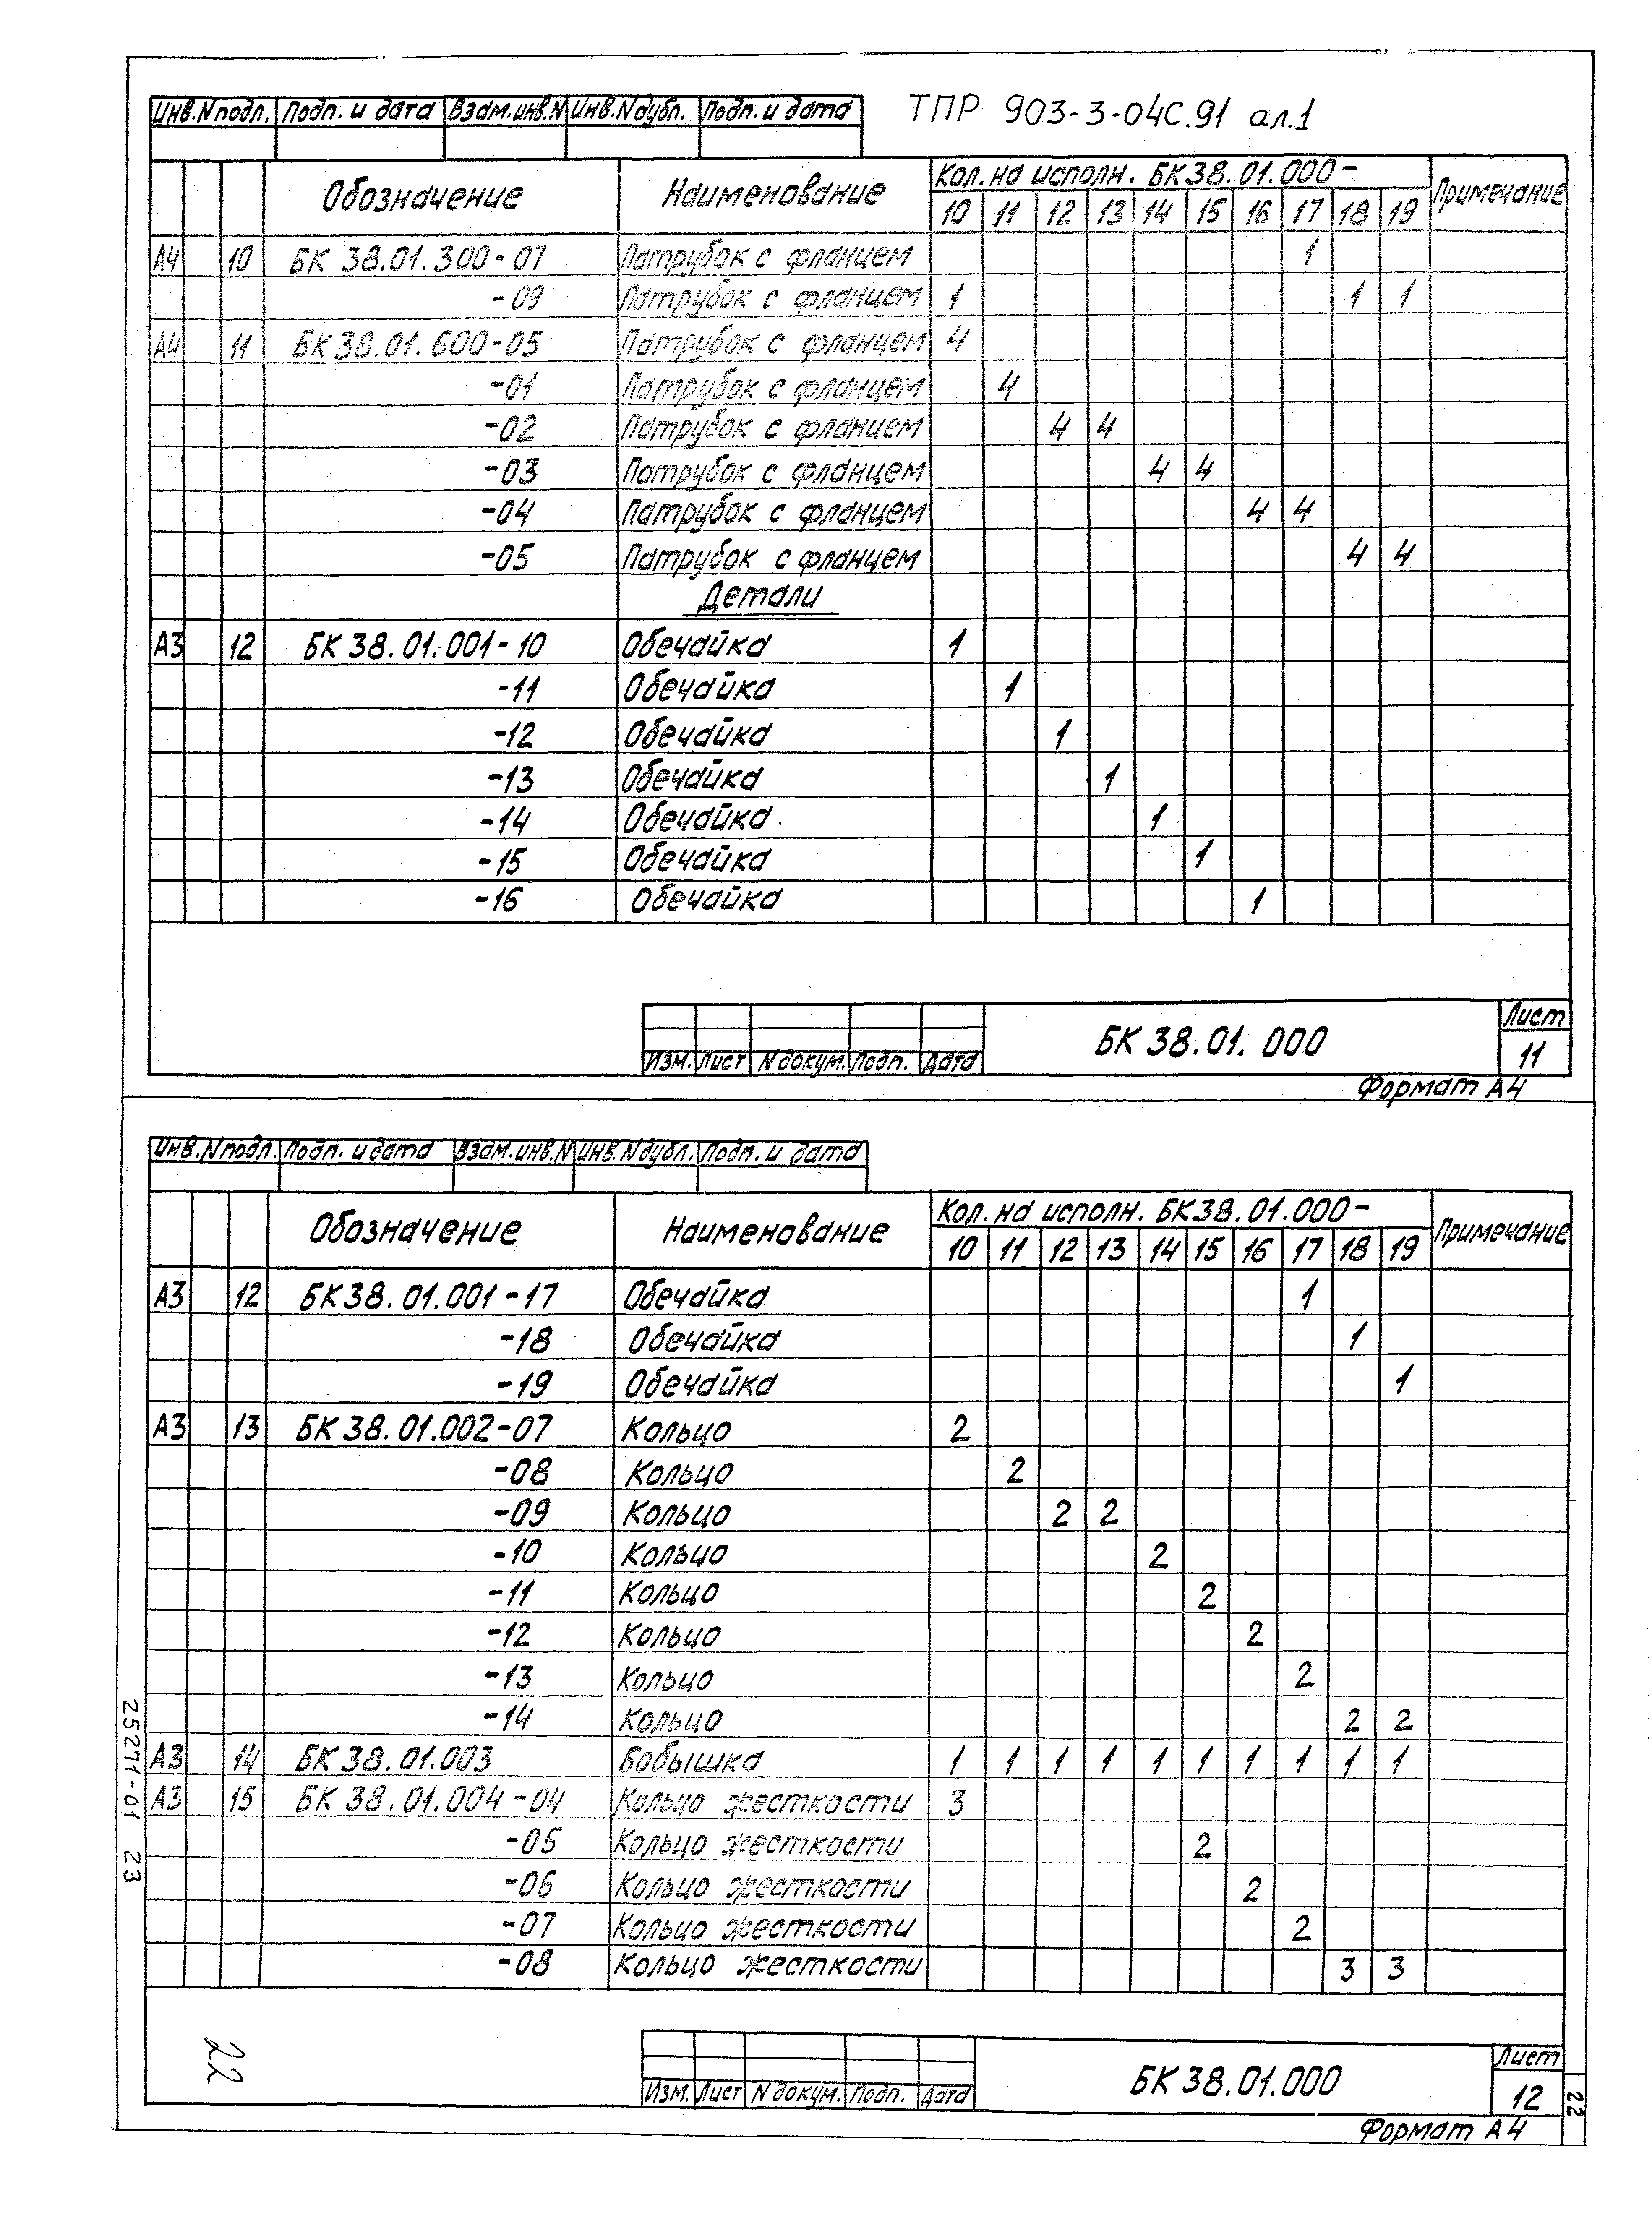 ТПР 903-3-04С.91 ал.1
Инв.N подл. Подп. и дата Взам.инв.N Инв.N дубл. Подп. и дата
Обозначение Наименование Кол. на исполн. БК 38.01.000- Примечание
10 11 12 13 14 15 16 17 18 19
А4 10 БК 38.01.300-07 Патрубок с фланцем 1
-09 Патрубок с фланцем 1 1 1
А4 11 БК 38.01.600-05 Патрубок с фланцем 4
-01 Патрубок с фланцем 4
-02 Патрубок с фланцем 4 4
-03 Патрубок с фланцем 4 4
-04 Патрубок с фланцем 4 4
-05 Патрубок с фланцем 4 4
Детали
А3 12 БК 38.01.001-10 Обечайка 1
-11 Обечайка 1
-12 Обечайка 1
-13 Обечайка 1
-14 Обечайка 1
-15 Обечайка 1
-16 Обечайка 1
Изм. Лист N докум. Подп. Дата БК 38.01.000 Лист 11
Формат А4
Инв.N подл. Подп. и дата Взам.инв.N Инв.N дубл. Подп. и дата
Обозначение Наименование Кол. на исполн. БК 38.01.000- Примечание
10 11 12 13 14 15 16 17 18 19
А3 12 БК 38.01.001-17 Обечайка 1
-18 Обечайка 1
-19 Обечайка 1
А3 13 БК 38.01.002-07 Кольцо 2
-08 Кольцо 2
-09 Кольцо 2 2
-10 Кольцо 2
-11 Кольцо 2
-12 Кольцо 2
-13 Кольцо 2
-14 Кольцо 2 2
А3 14 БК 38.01.003 Бобышка 1 1 1 1 1 1 1 1 1 1
А3 15 БК 38.01.004-04 Кольцо жесткости 3
-05 Кольцо жесткости 2
-06 Кольцо жесткости 2
-07 Кольцо жесткости 2
-08 Кольцо жесткости 3 3
Изм. Лист N докум. Подп. Дата БК 38.01.000 Лист 12
Формат А4
25271-01 23
22
22